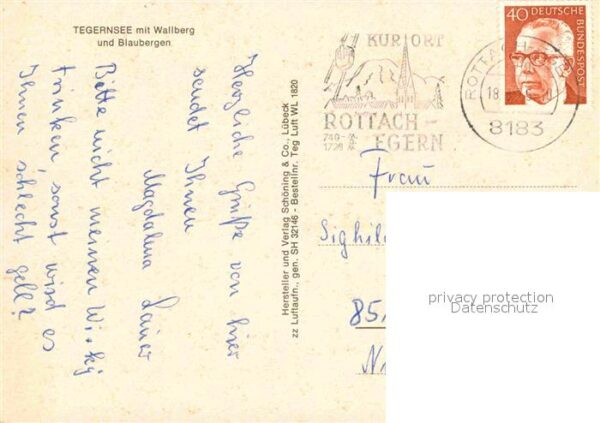 TEGERNSEE mit Wallberg
und Blaubergen
Herzliche Grüße von hier
sendet Ihnen
Magdalena Lauer
Bitte nicht meinen Wisky
trinken, sonst wird es
Ihnen schlecht
gell?
Hersteller und Verlag Schöning & Co., Lübeck
zz Luftaufn., gen. SH 32146 - Bestellnr. Teg Luft WL 1820
KURORT
ROTTACH-
EGERN
740-
1728
ROTTACH-
18.
8183
40 DEUTSCHE
BUNDESPOST
Frau
85
N
privacy protection
Datenschutz